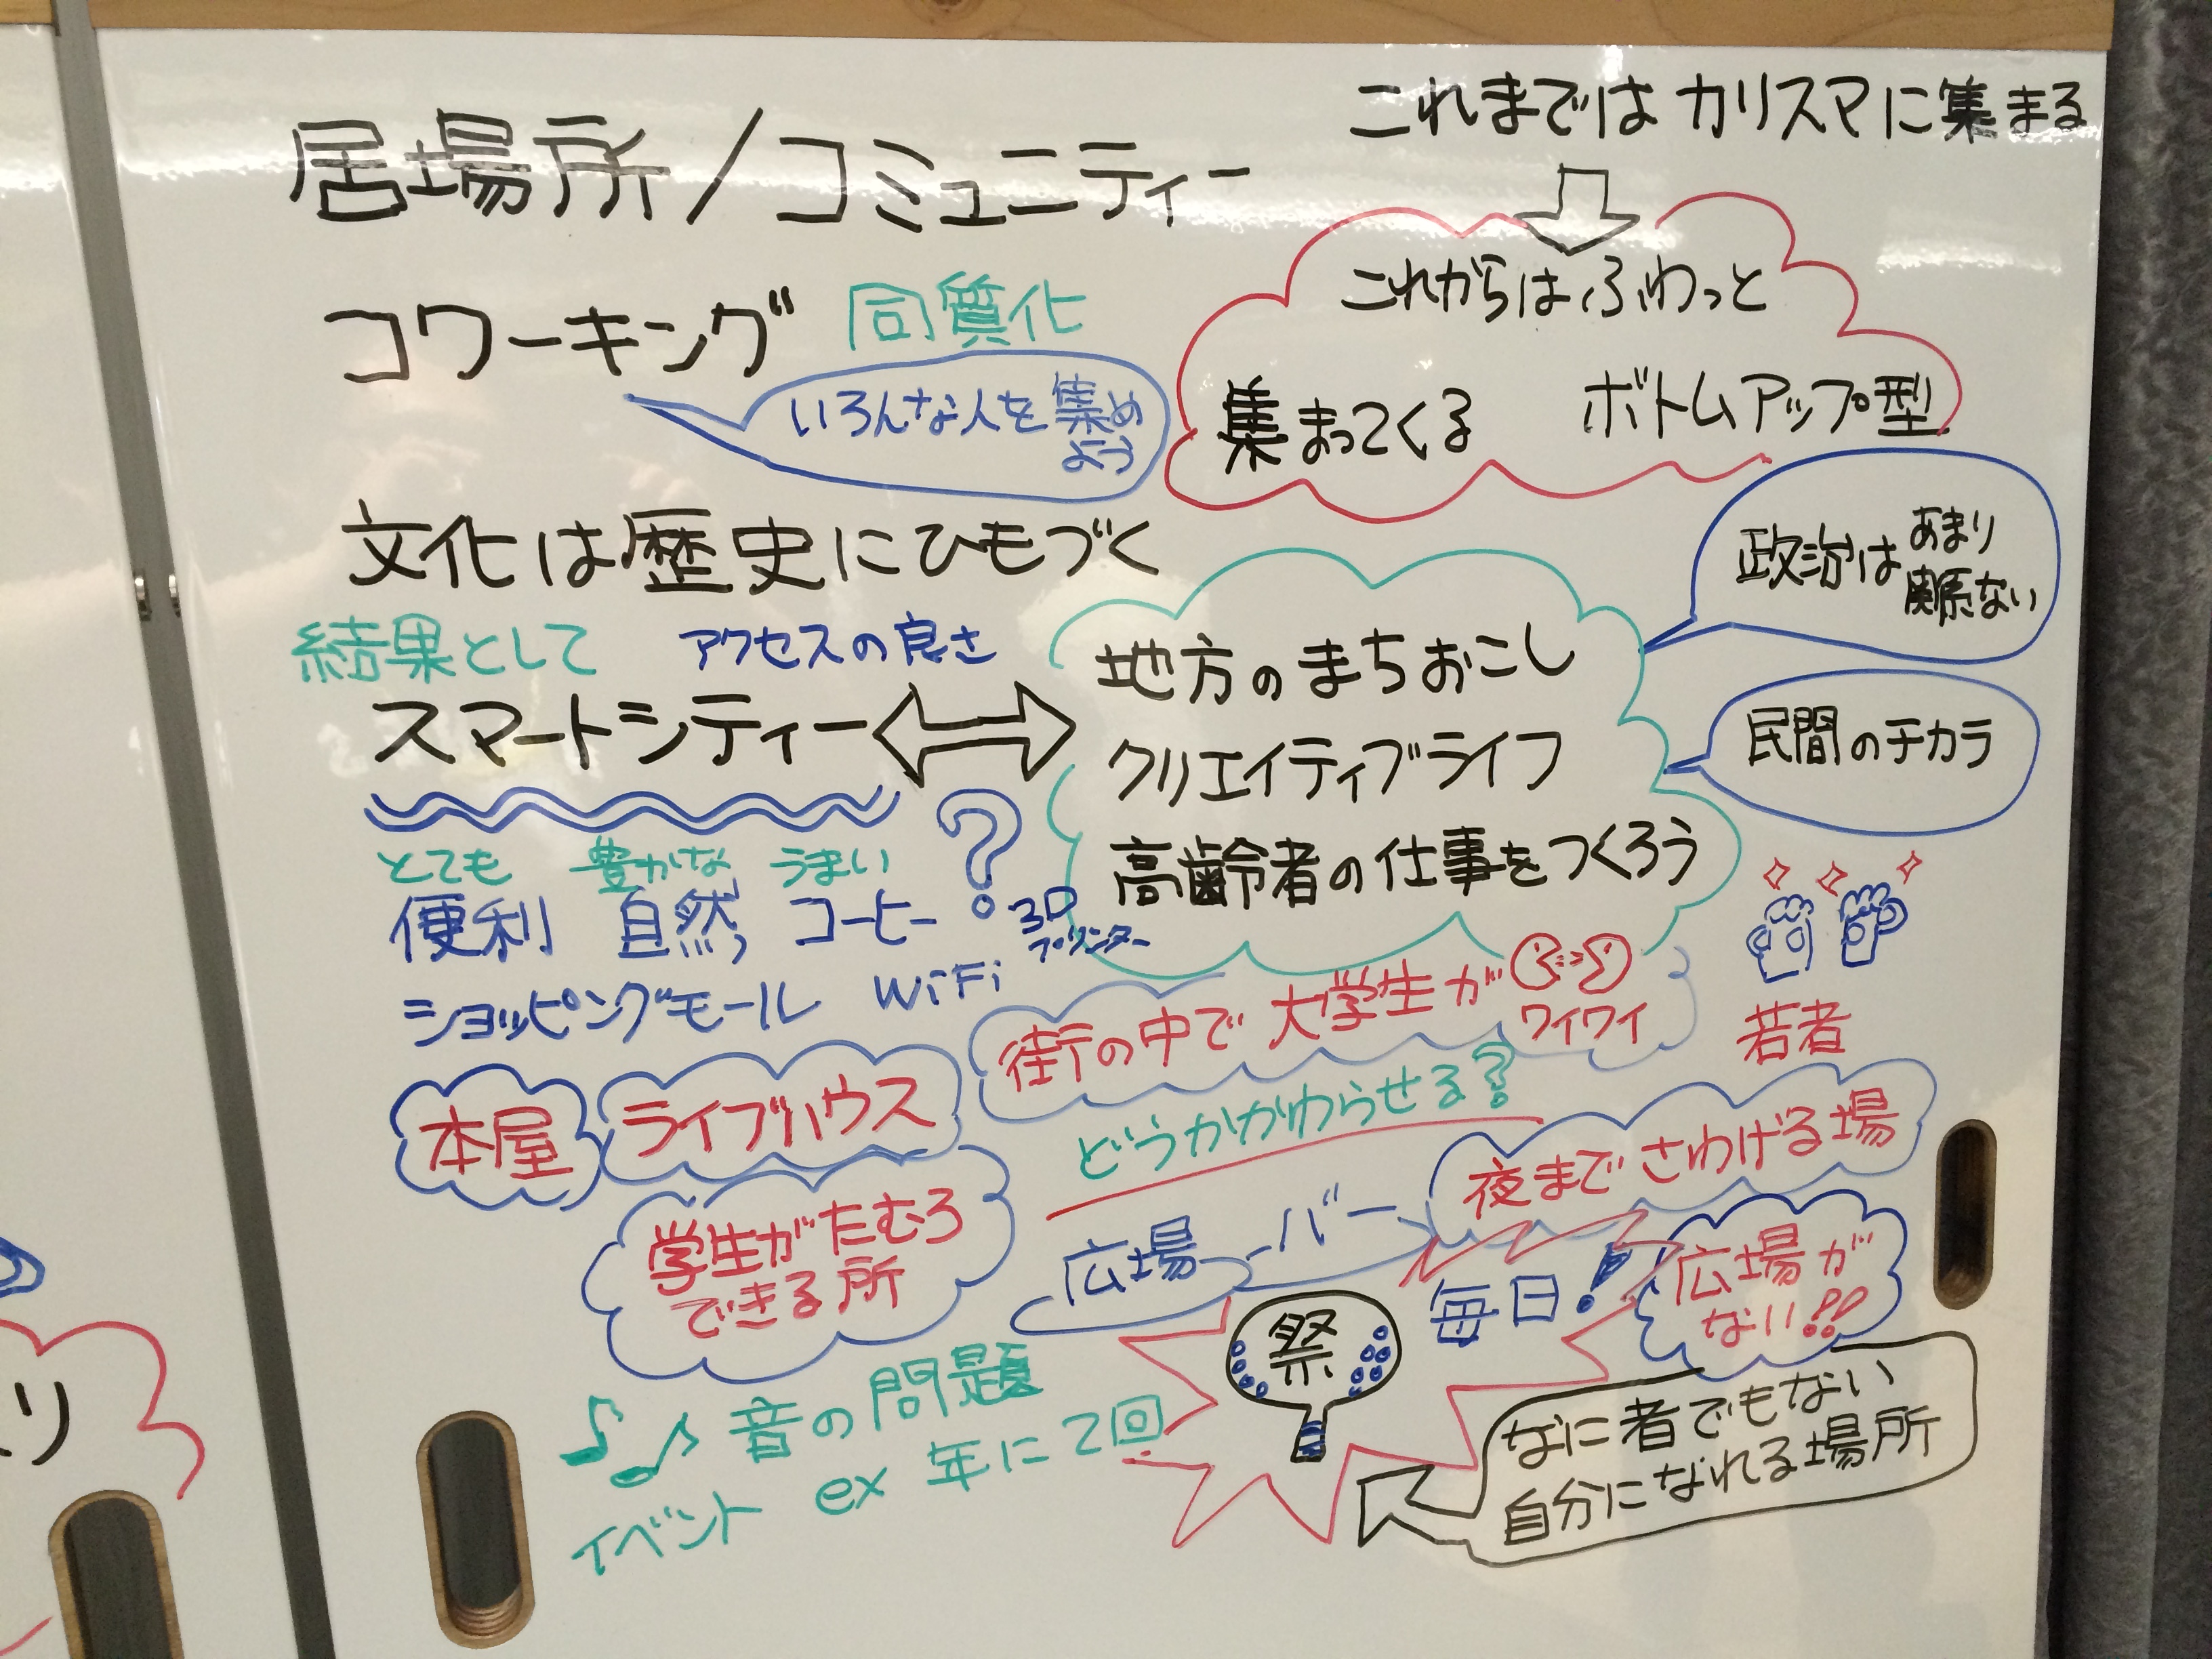 居場所/コミュニティー
これまではカリスマに集まる
これからはふわっと
集まってくる ボトムアップ型
コワーキング 同質化
いろんな人を集め
よう
文化は歴史にひもづく
政治は あまり
関係ない
結果として アクセスの良さ
スマートシティー
地方のまちおこし
クリエイティブライフ
高齢者の仕事をつくろう
民間のチカラ
とても 豊かな うまい
便利 自然 コーヒー ?
3D
プリンター
ショッピングモール WiFi
街の中で大学生が
ワイワイ
若者
どうかかわらせる?
本屋
ライブハウス
夜までさわげる場
学生がたむろ
できる所
広場 バー
毎日!
広場が
ない!!
祭
音の問題
イベント ex 年に2回
なに者でもない
自分になれる場所
リ